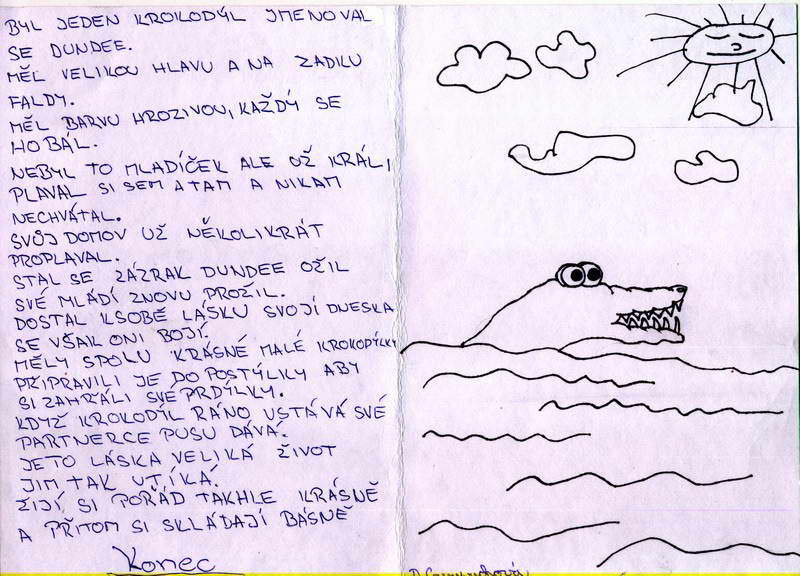 BYL JEDEN KROKODÝL JMENOVAL
SE DUNDEE.
MĚL VELIKOU HLAVU A NA ZADKU
FALDY.
MĚL BARVU HROZIVOU, KAŽDÝ SE
HO BÁL.
NEBYL TO MLADÍČEK ALE UŽ KRÁL,
PLAVAL SI SEM A TAM A NIKAM
NECHVÁTAL.
SVŮJ DOMOV UŽ NĚKOLIKRÁT
PROPLAVAL.
STAL SE ZÁZRAK DUNDEE OŽIL
SVÉ MLÁDÍ ZNOVU PROŽIL.
DOSTAL K SOBĚ LÁSKU SVOJÍ DNESKA
SE VŠAK ONI BOJÍ.
MĚLY SPOLU KRÁSNÉ MALÉ KROKODÝLKY
PŘIPRAVILI JE DO POSTÝLKY ABY
SI ZAHRÁLI SVÉ PRDÝLKY.
KDYŽ KROKODÝL RÁNO VSTÁVÁ SVÉ
PARTNERCE PUSU DÁVÁ.
JE TO LÁSKA VELIKÁ ŽIVOT
JIM TAK UTÍKÁ.
ŽIJÍ SI POŘÁD TAKHLE KRÁSNĚ
A PŘITOM SI SKLÁDAJÍ BÁSNĚ
Konec